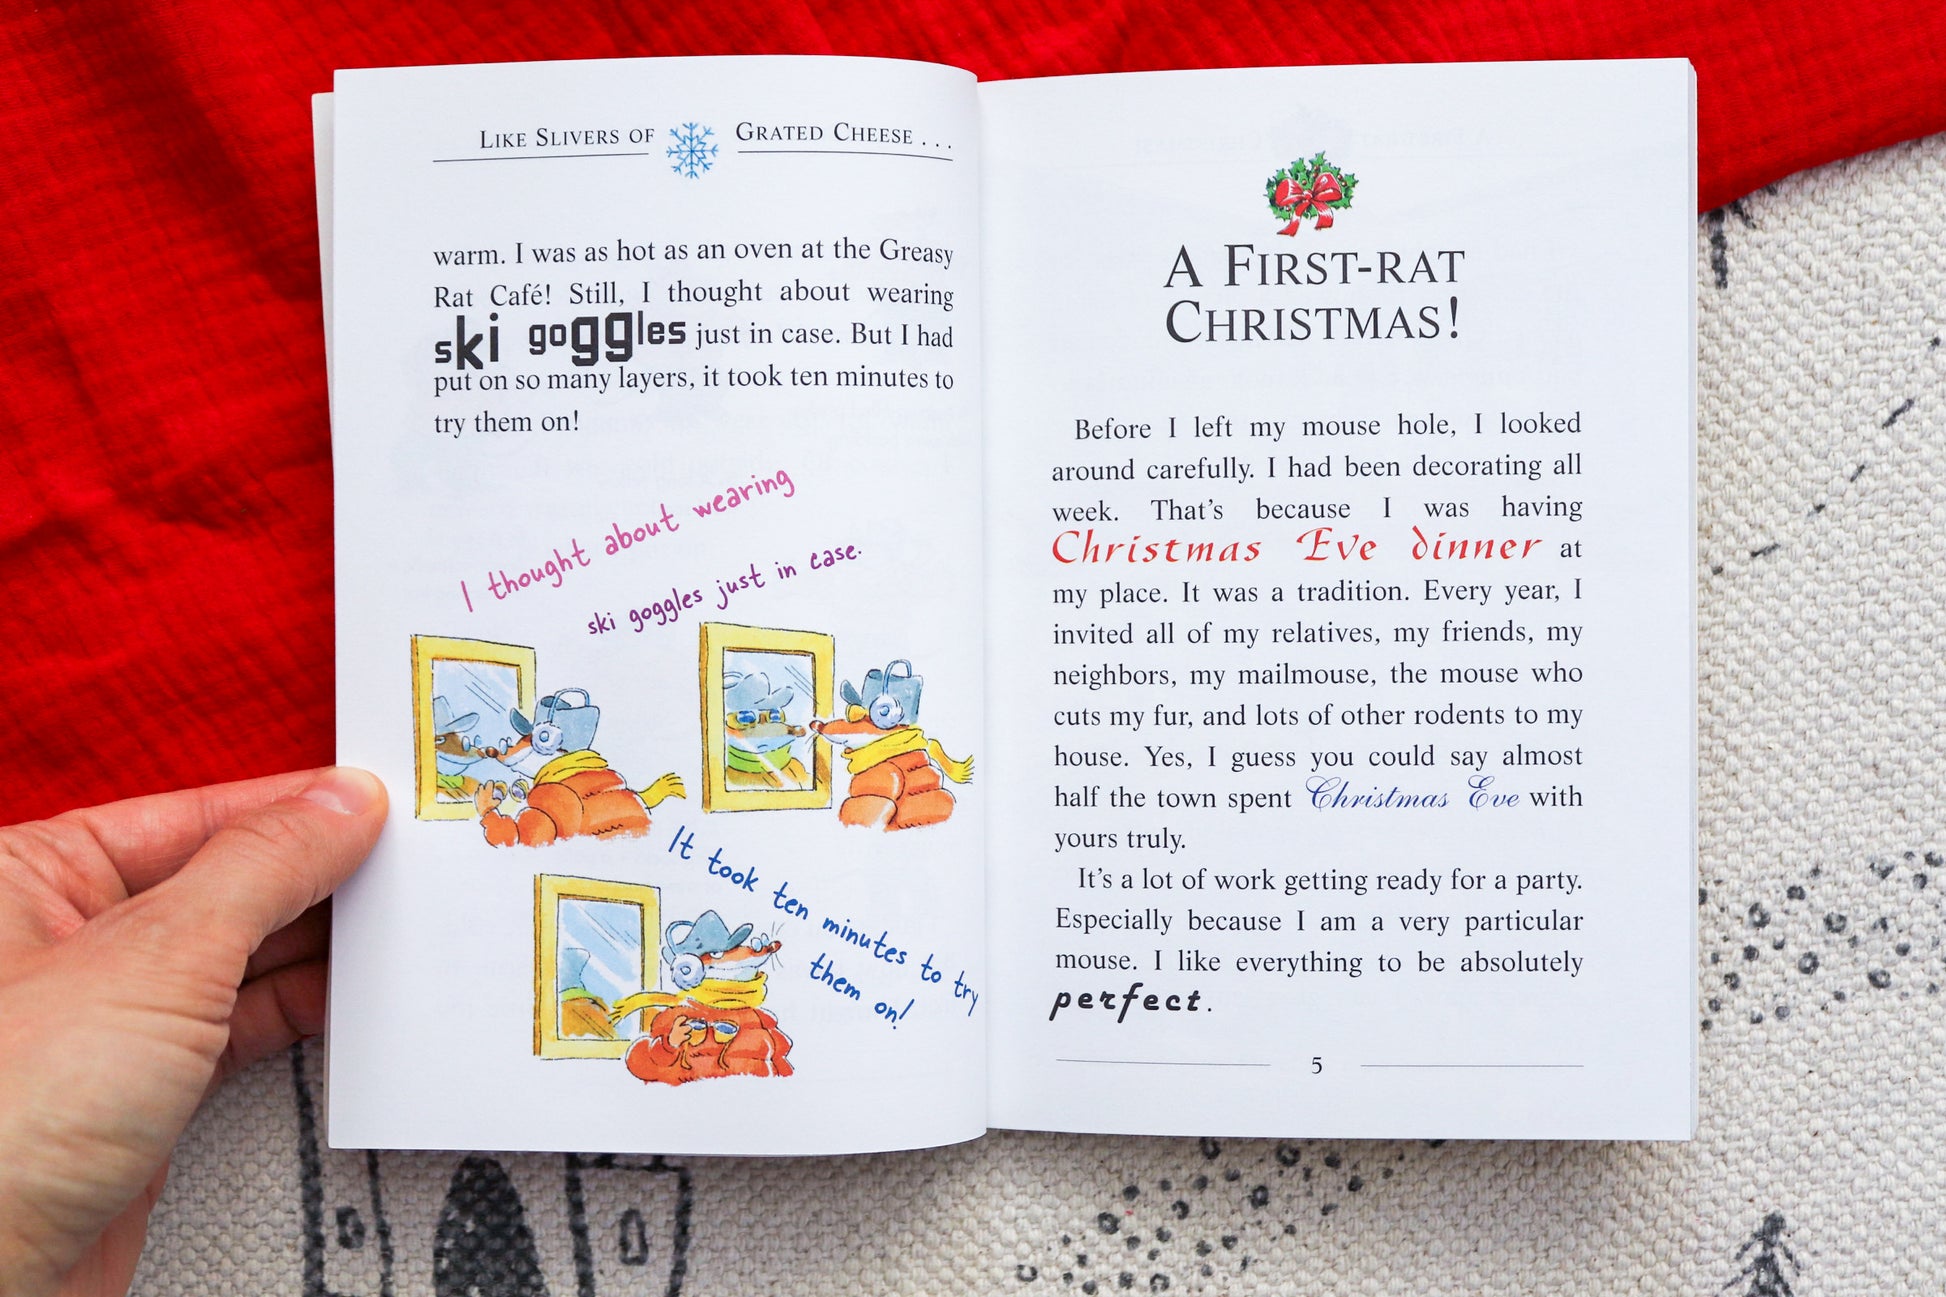 LIKE SLIVERS OF GRATED CHEESE . . .
warm. I was as hot as an oven at the Greasy
Rat Café! Still, I thought about wearing
ski goggles just in case. But I had
put on so many layers, it took ten minutes to
try them on!
I thought about wearing
ski goggles just in case.
It took ten minutes to try
them on!
A FIRST-RAT
CHRISTMAS!
Before I left my mouse hole, I looked
around carefully. I had been decorating all
week. That’s because I was having
Christmas Eve dinner at
my place. It was a tradition. Every year, I
invited all of my relatives, my friends, my
neighbors, my mailmouse, the mouse who
cuts my fur, and lots of other rodents to my
house. Yes, I guess you could say almost
half the town spent Christmas Eve with
yours truly.
It’s a lot of work getting ready for a party.
Especially because I am a very particular
mouse. I like everything to be absolutely
perfect.
5